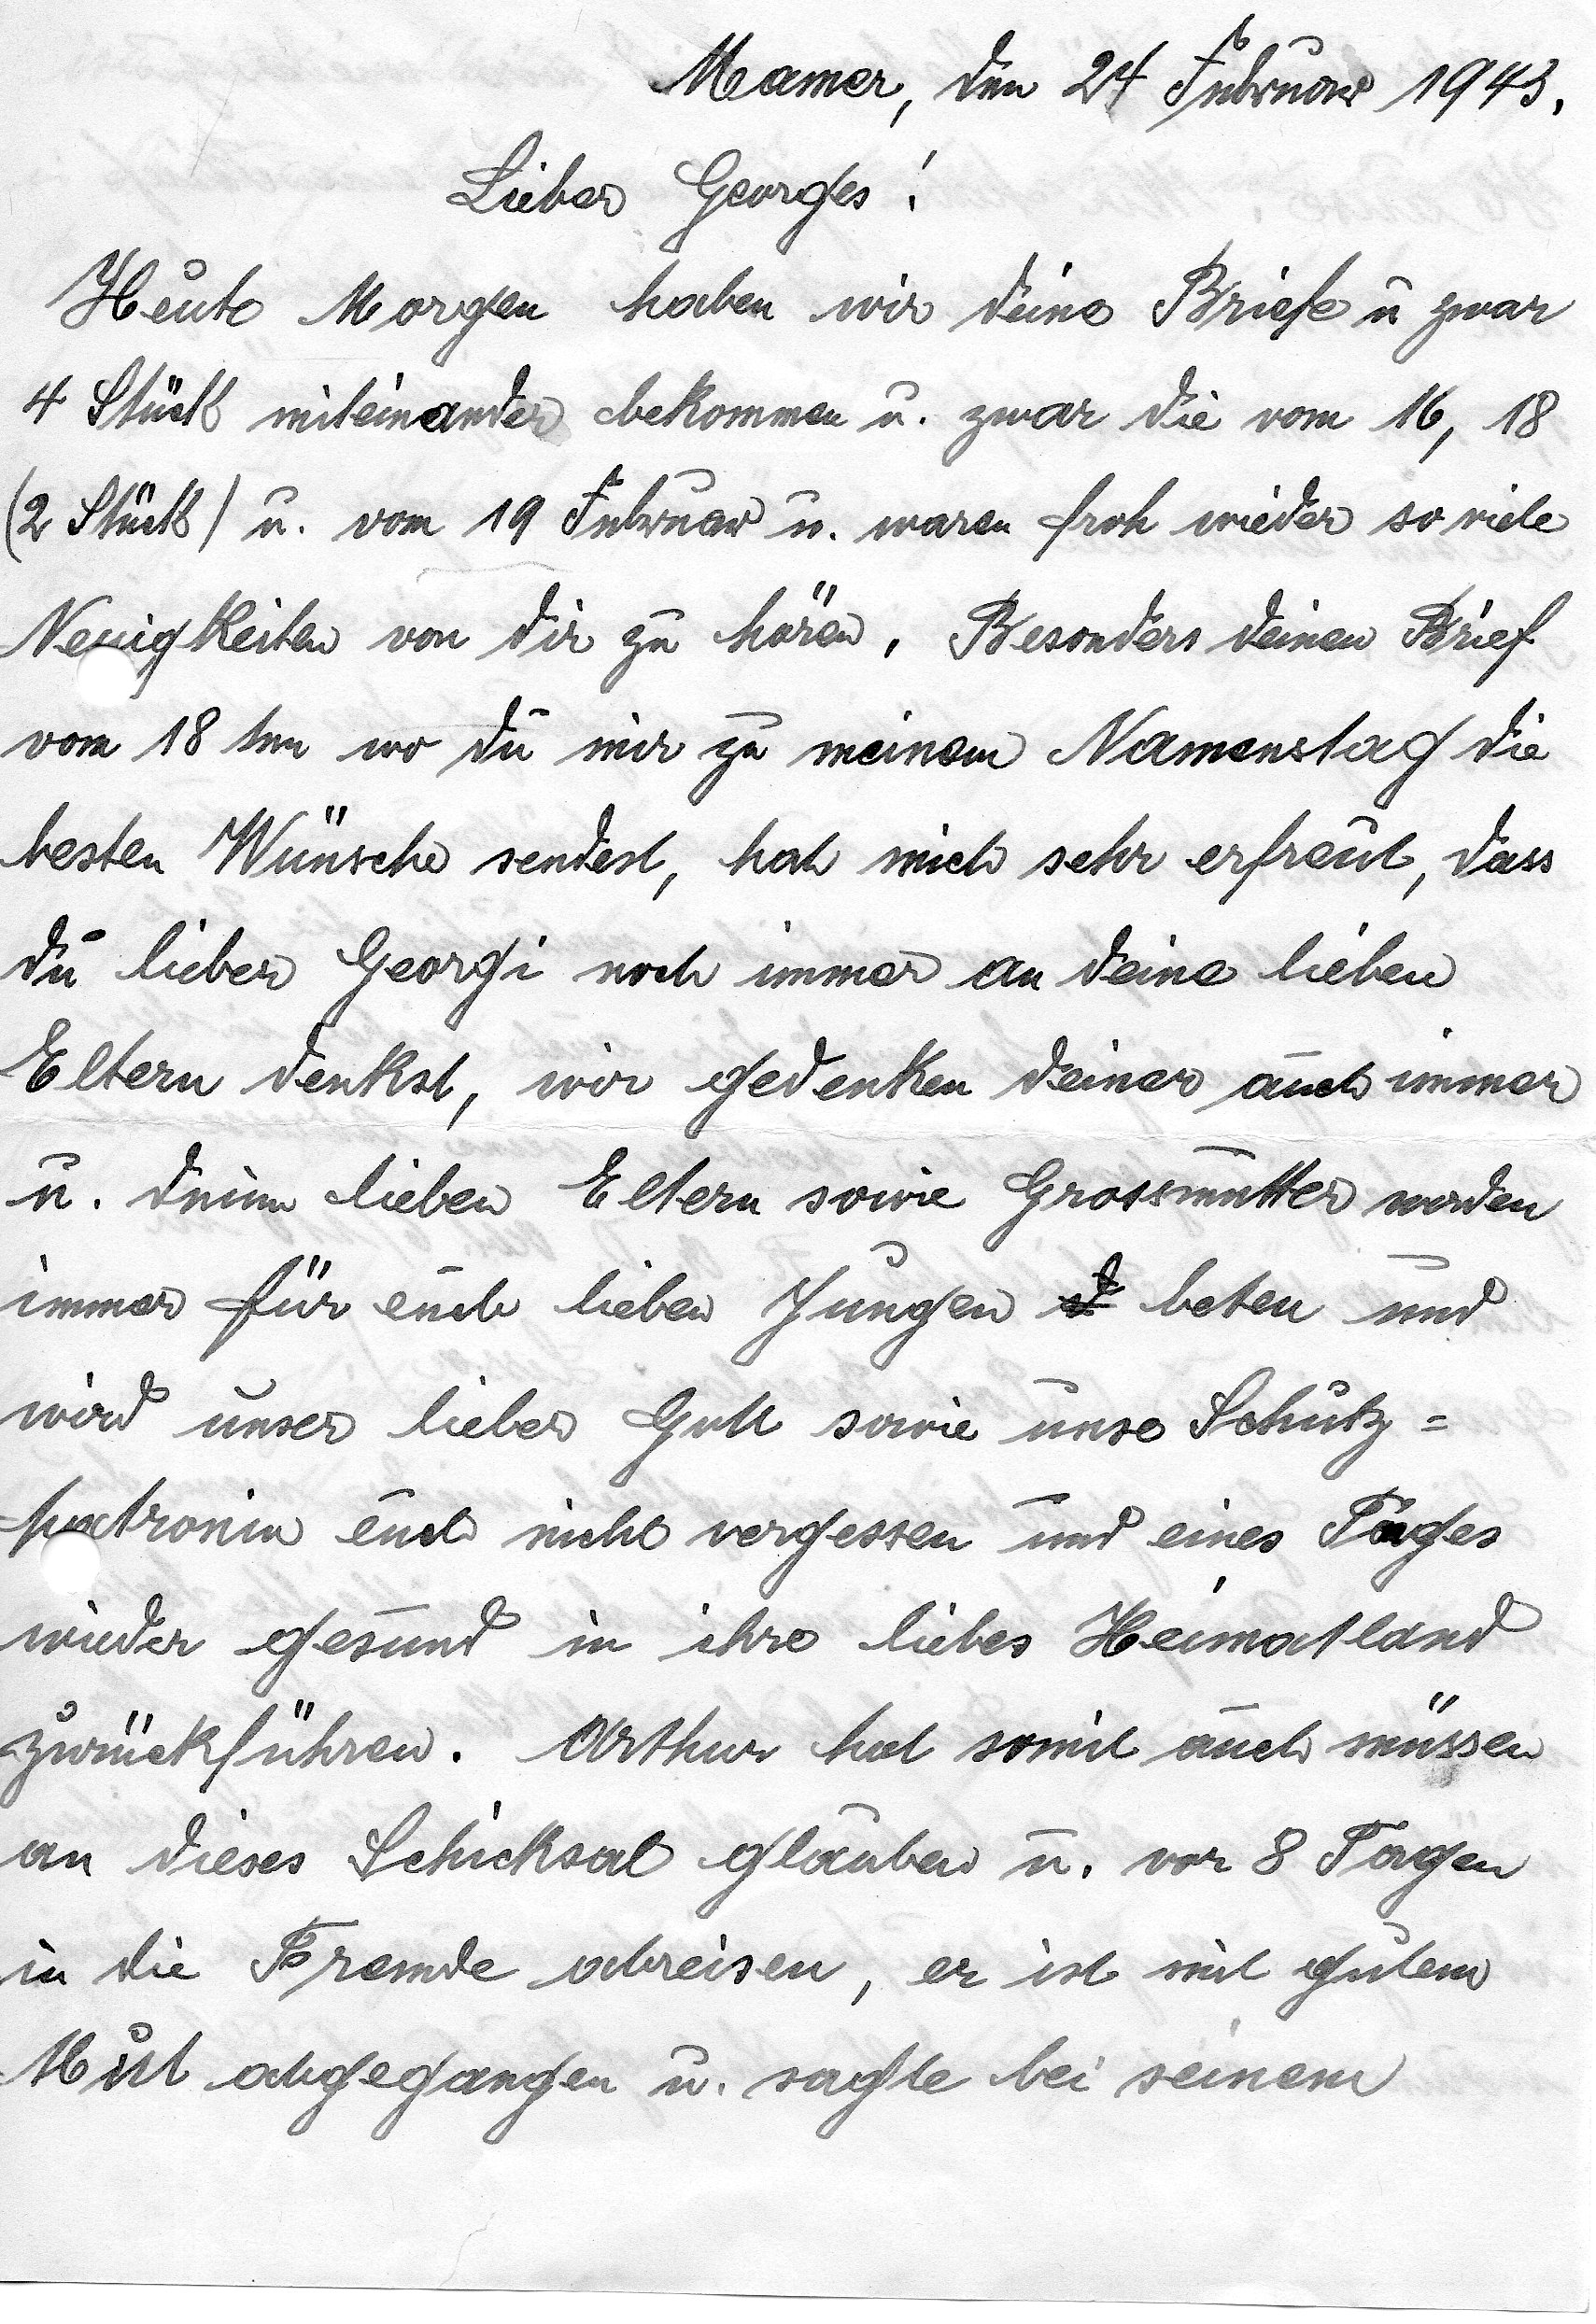 Mamer, den 24 Februar 1943.
Lieber Georges!
Heute Morgen haben wir deine Briefe u zwar
4 Stück miteinander bekommen u. zwar die vom 16, 18
(2 Stück) u. vom 19 Februar u. waren froh wieder so viele
Neuigkeiten von dir zu hören. Besonders deinen Brief
vom 18 ten wo du mir zu meinem Namenstag die
besten Wünsche sendest, hat mich sehr erfreut, dass
du lieber Georgi noch immer an deine lieben
Eltern denkst, wir gedenken deiner auch immer
u. deine lieben Eltern sowie Grossmutter werden
immer für euch lieben Jungen beten und
wird unser lieber Gott sowie unse Schutz=
patronin euch nicht vergessen und eines Tages
wieder gesund in ihre liebes Heimatland
zurückführen. Arthur hat somit auch müssen
an dieses Schicksal glauben u. vor 8 Tagen
in die Fremde abreisen, er ist mit gutem
Mut abgegangen u. sagte bei seinem